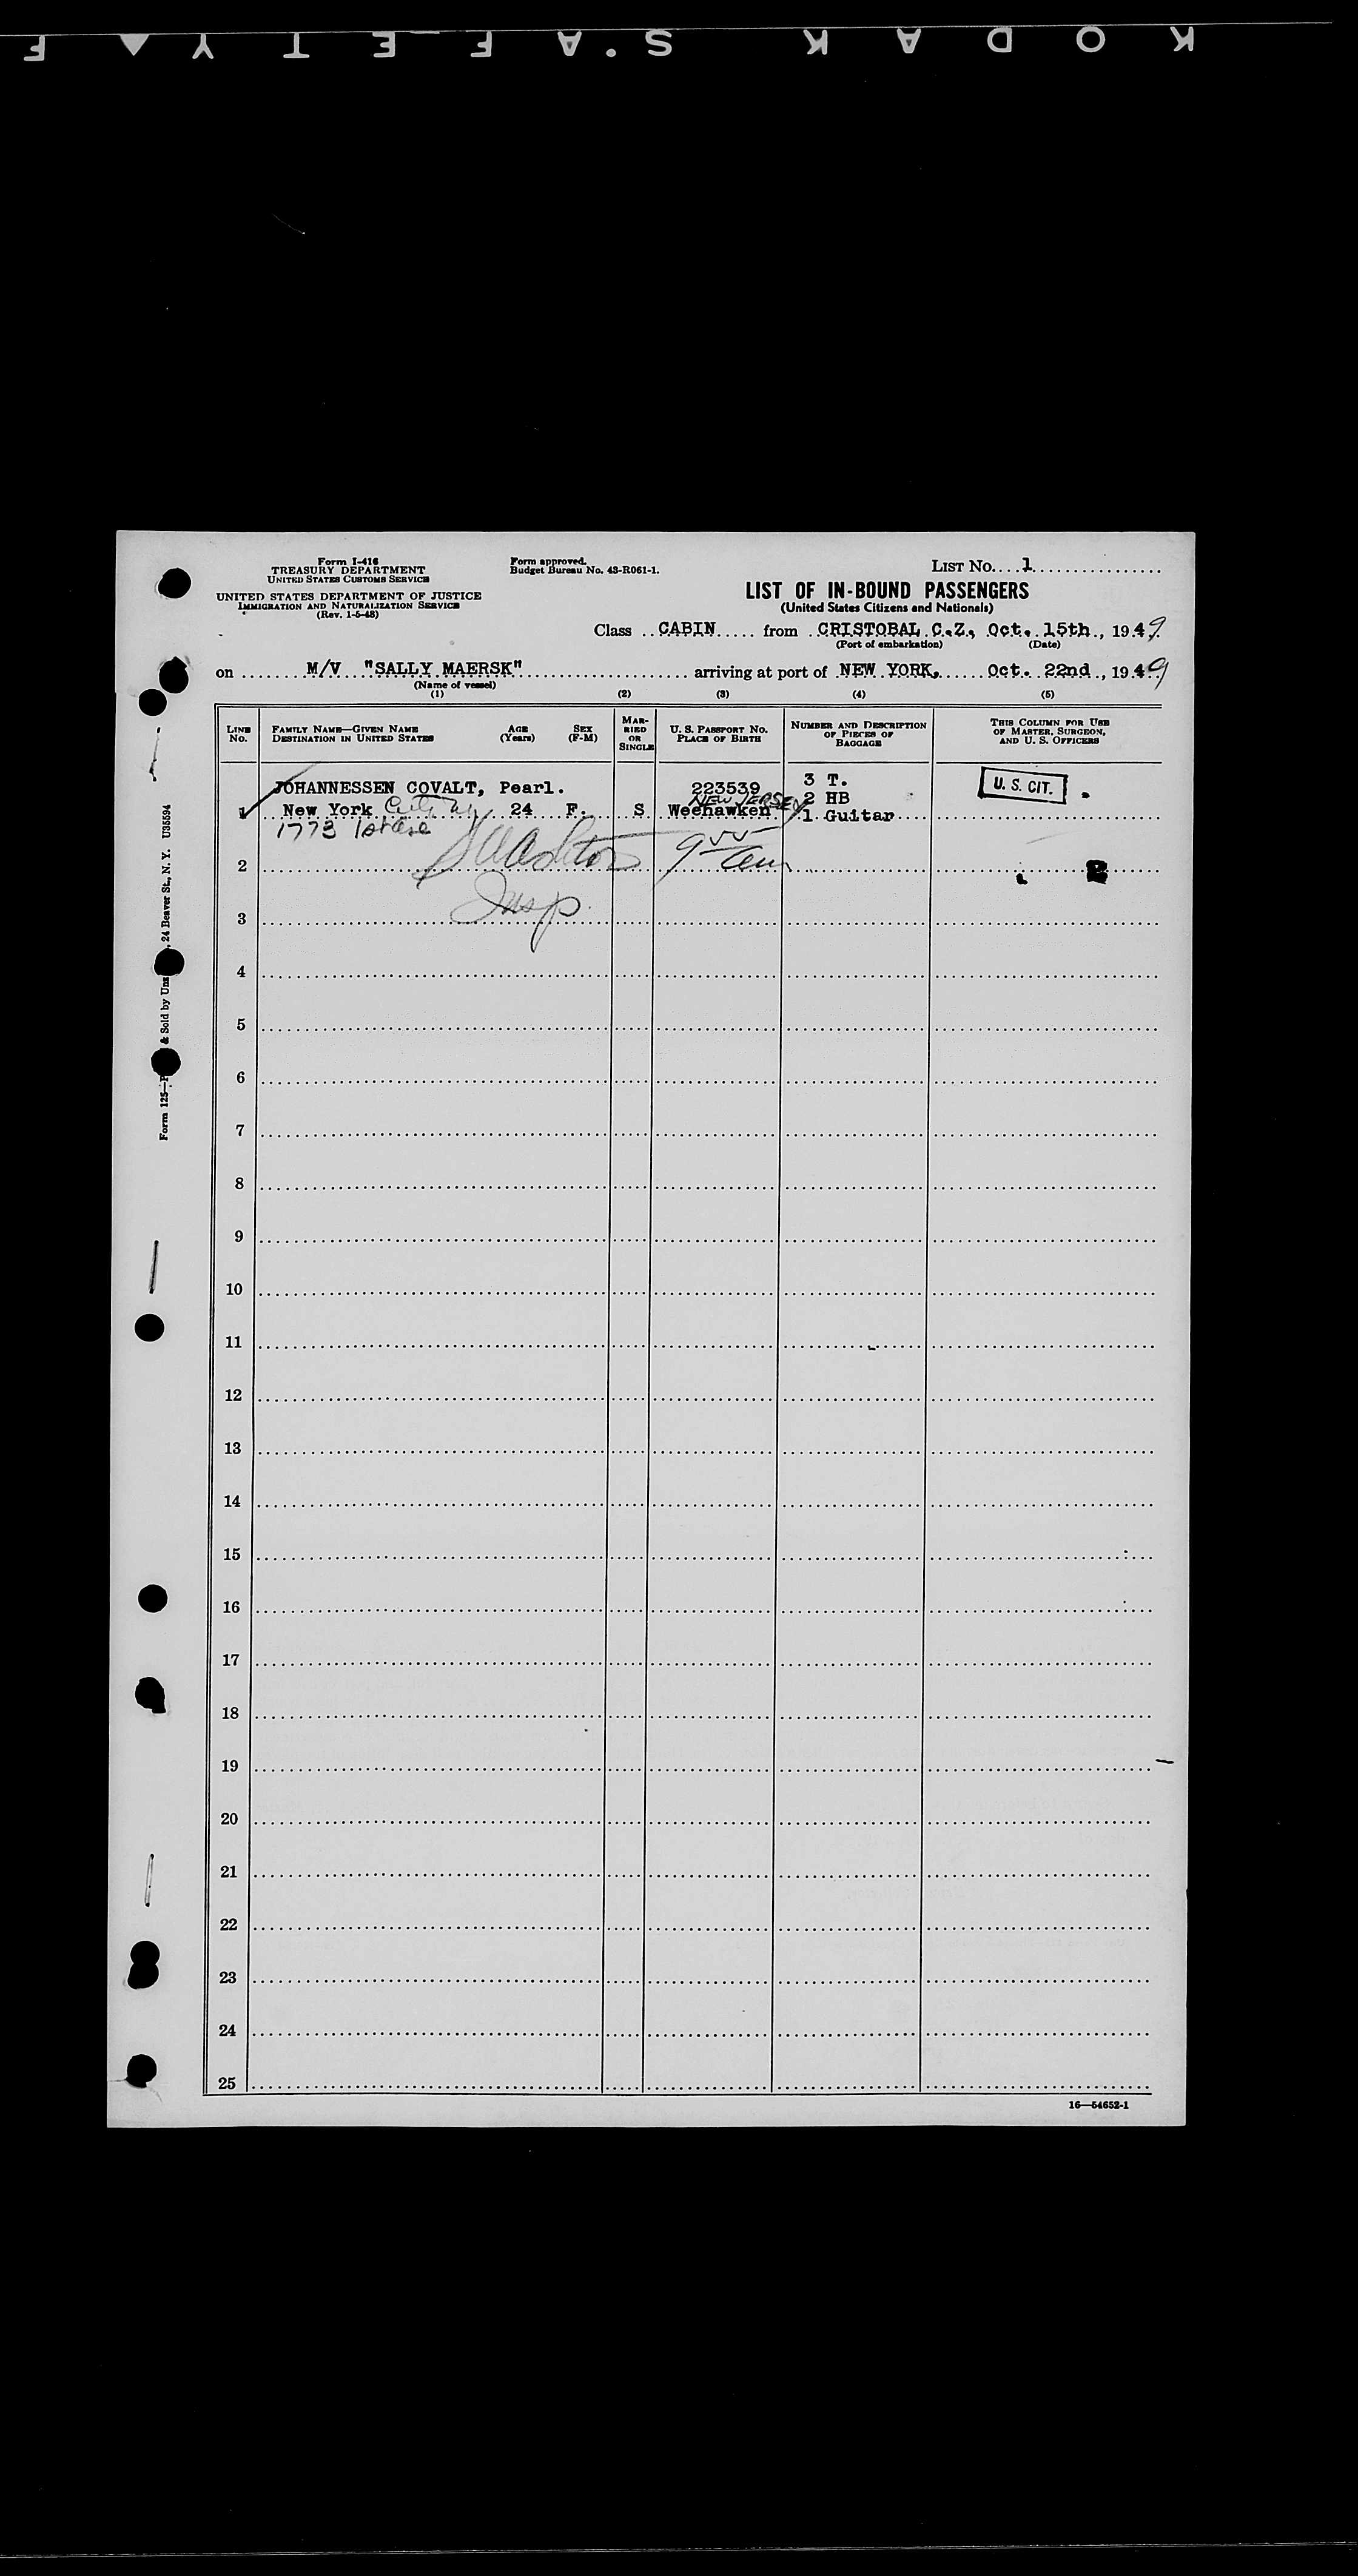 KODAK S.A F E T Y F
Form I-416
TREASURY DEPARTMENT
UNITED STATES CUSTOMS SERVICE
UNITED STATES DEPARTMENT OF JUSTICE
IMMIGRATION AND NATURALIZATION SERVICE
(Rev. 1-5-48)
Form approved.
Budget Bureau No. 43-R061-1.
LIST No. 1
LIST OF IN-BOUND PASSENGERS
(United States Citizens and Nationals)
Class CABIN from CRISTOBAL C.Z., Oct. 15th, 1949
(Port of embarkation) (Date)
on M/V "SALLY MAERSK" arriving at port of NEW YORK, Oct. 22nd, 1949
(Name of vessel)
(1) (2) (3) (4) (5)
LINE No. FAMILY NAME—GIVEN NAME DESTINATION IN UNITED STATES AGE (Years) SEX (F-M) MARRIED OR SINGLE U. S. PASSPORT NO. PLACE OF BIRTH NUMBER AND DESCRIPTION OF PIECES OF BAGGAGE THIS COLUMN FOR USE OF MASTER, SURGEON, AND U. S. OFFICERS
JOHANNESSEN COVALT, Pearl. 223539 3 T. U. S. CIT.
NEW JERSEY 2 HB
1 New York City NY 24 F. S Weehawken 1 Guitar
1773 1st Ave
2
Insp.
3
4
5
6
7
8
9
10
11
12
13
14
15
16
17
18
19
20
21
22
23
24
25
16—54652-1
Form 125— & Sold by Unz , 24 Beaver St., N. Y. U35594